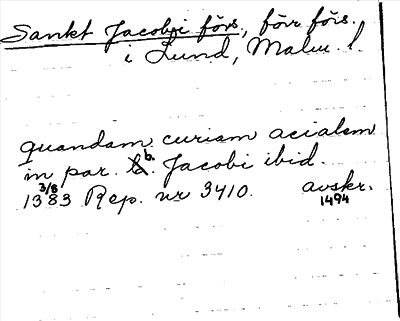 Sankt Jacobi förs, förr förs.
i Lund, Malm. l.
quandam curiam acialem
in par. b. Jacobi ibid.
1383 3/8 Rep. nr 3410. avskr. 1494